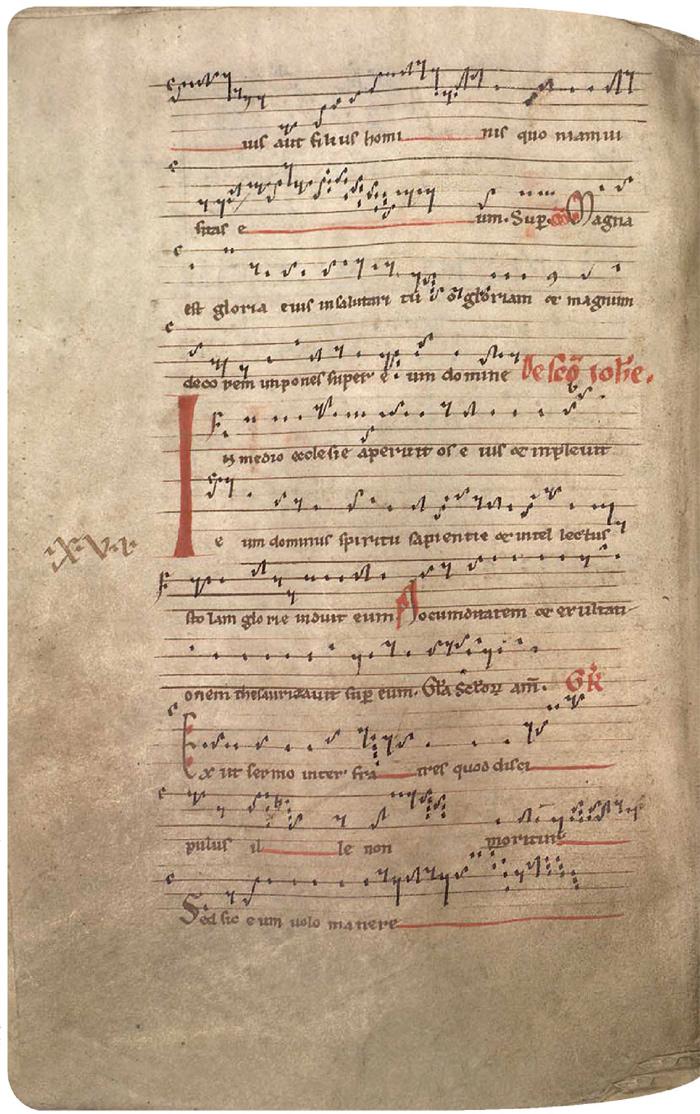 uis aut filius homi nis quo niam ui
sitas e um. Sup. Magna
est gloria eius in salutari tu o gloriam et magnum
deco rem impones super e um domine De sco iohe.
In medio ecclesie aperuit os e ius et inpleuit
e um dominus spiritu sapientie et intel lectus
sto lam glo rie induit eum Iocunditatem et exultati
XV
onem thesaurizauit sup eum. Gla seculorum am. GR
Ex iit sermo inter fra tres quod disci
pulus il le non moritur
Sed sic e um uolo ma nere